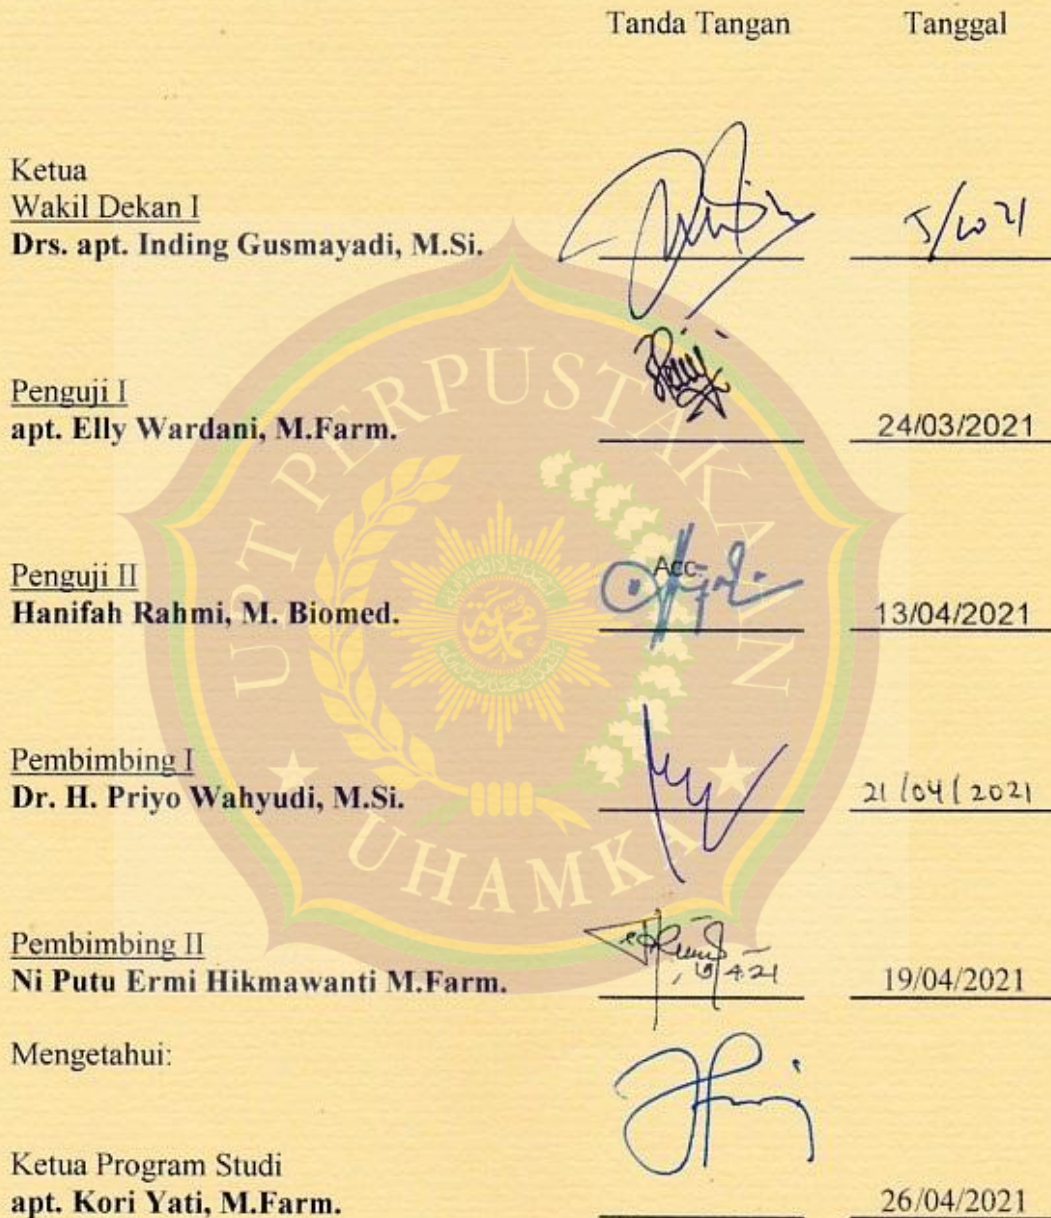 Tanda Tangan Tanggal
Ketua
Wakil Dekan I
Drs. apt. Inding Gusmayadi, M.Si. 5/2021
Penguji I
apt. Elly Wardani, M.Farm. 24/03/2021
Penguji II
Acc.
Hanifah Rahmi, M. Biomed. 13/04/2021
Pembimbing I
Dr. H. Priyo Wahyudi, M.Si. 21/04/2021
Pembimbing II
Ni Putu Ermi Hikmawanti M.Farm. 19/04/2021
Mengetahui:
Ketua Program Studi
apt. Kori Yati, M.Farm. 26/04/2021
UPT PERPUSTAKAAN
UHAMKA